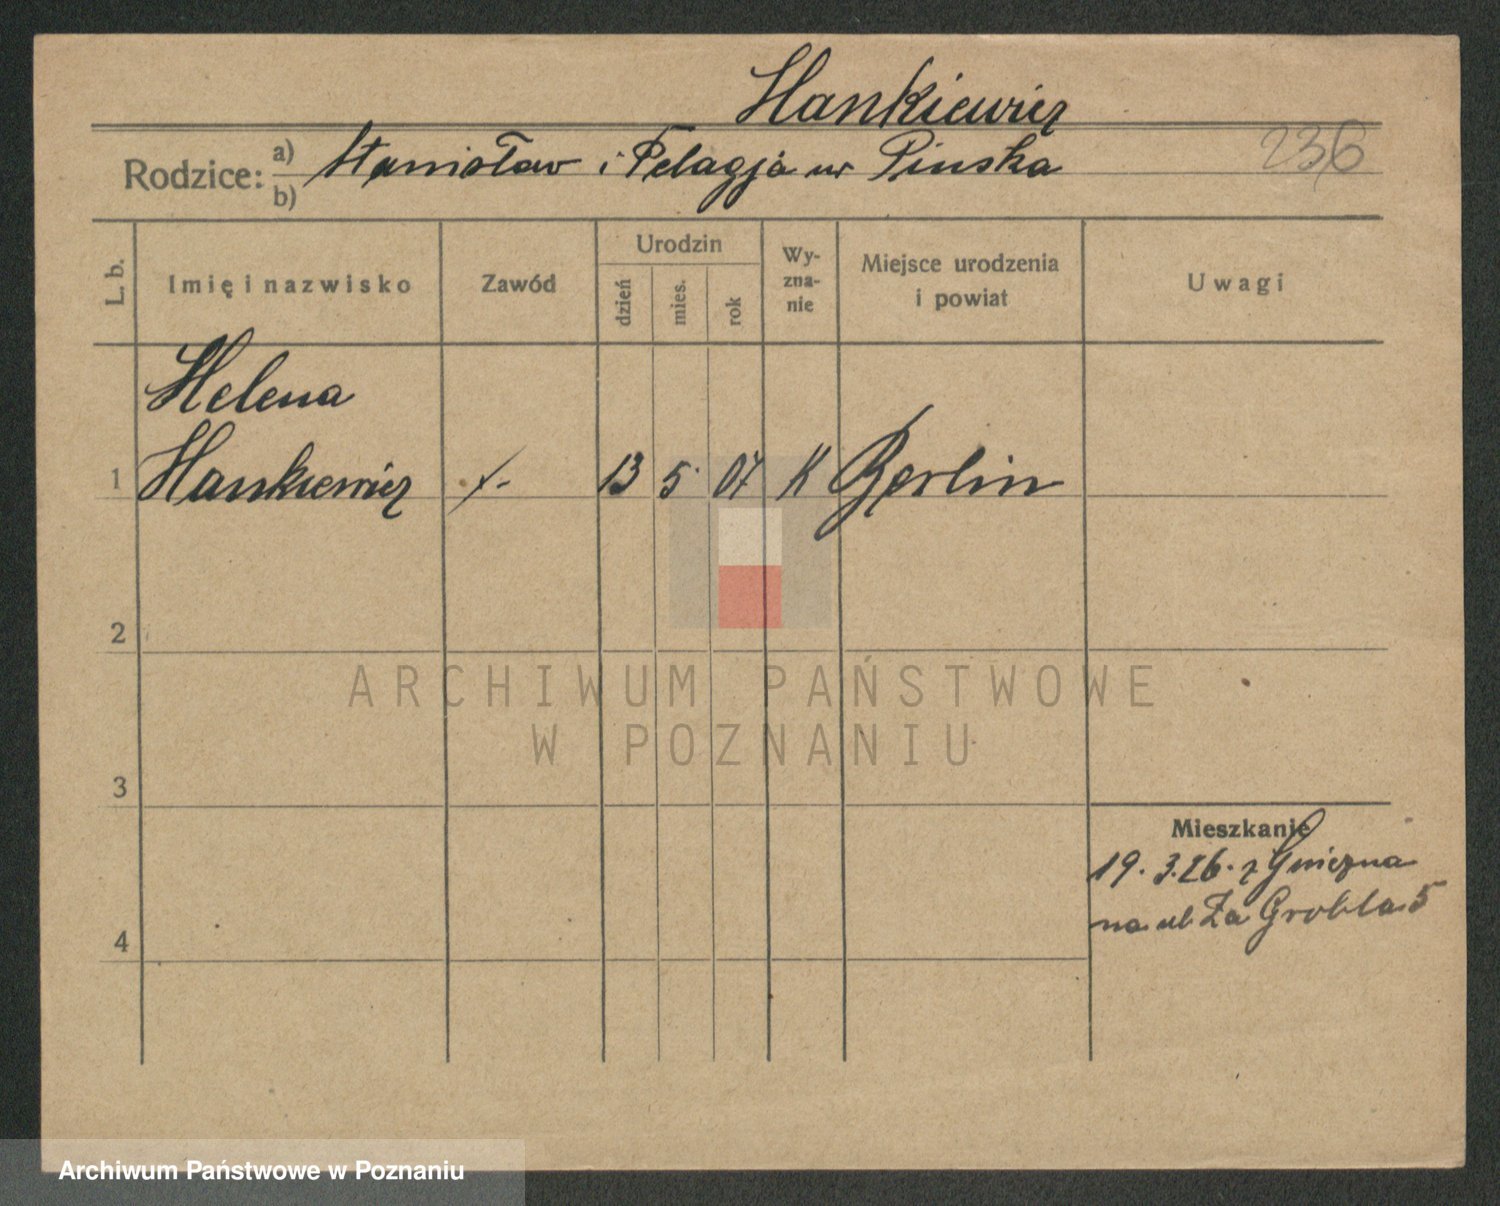 Hankiewicz
236
Rodzice: a) Stanisław i Pelagja ur Pinska
b)
L. b. Imię i nazwisko Zawód Urodzin dzień mies. rok Wy-zna-nie Miejsce urodzenia i powiat Uwagi
Helena
1 Hankiewicz /- 13 5 07 K Berlin
2
ARCHIWUM PAŃSTWOWE
W POZNANIU
3
Mieszkanie
19.3.26. z Gniezna
na ul Za Grobla 5
4
Archiwum Państwowe w Poznaniu